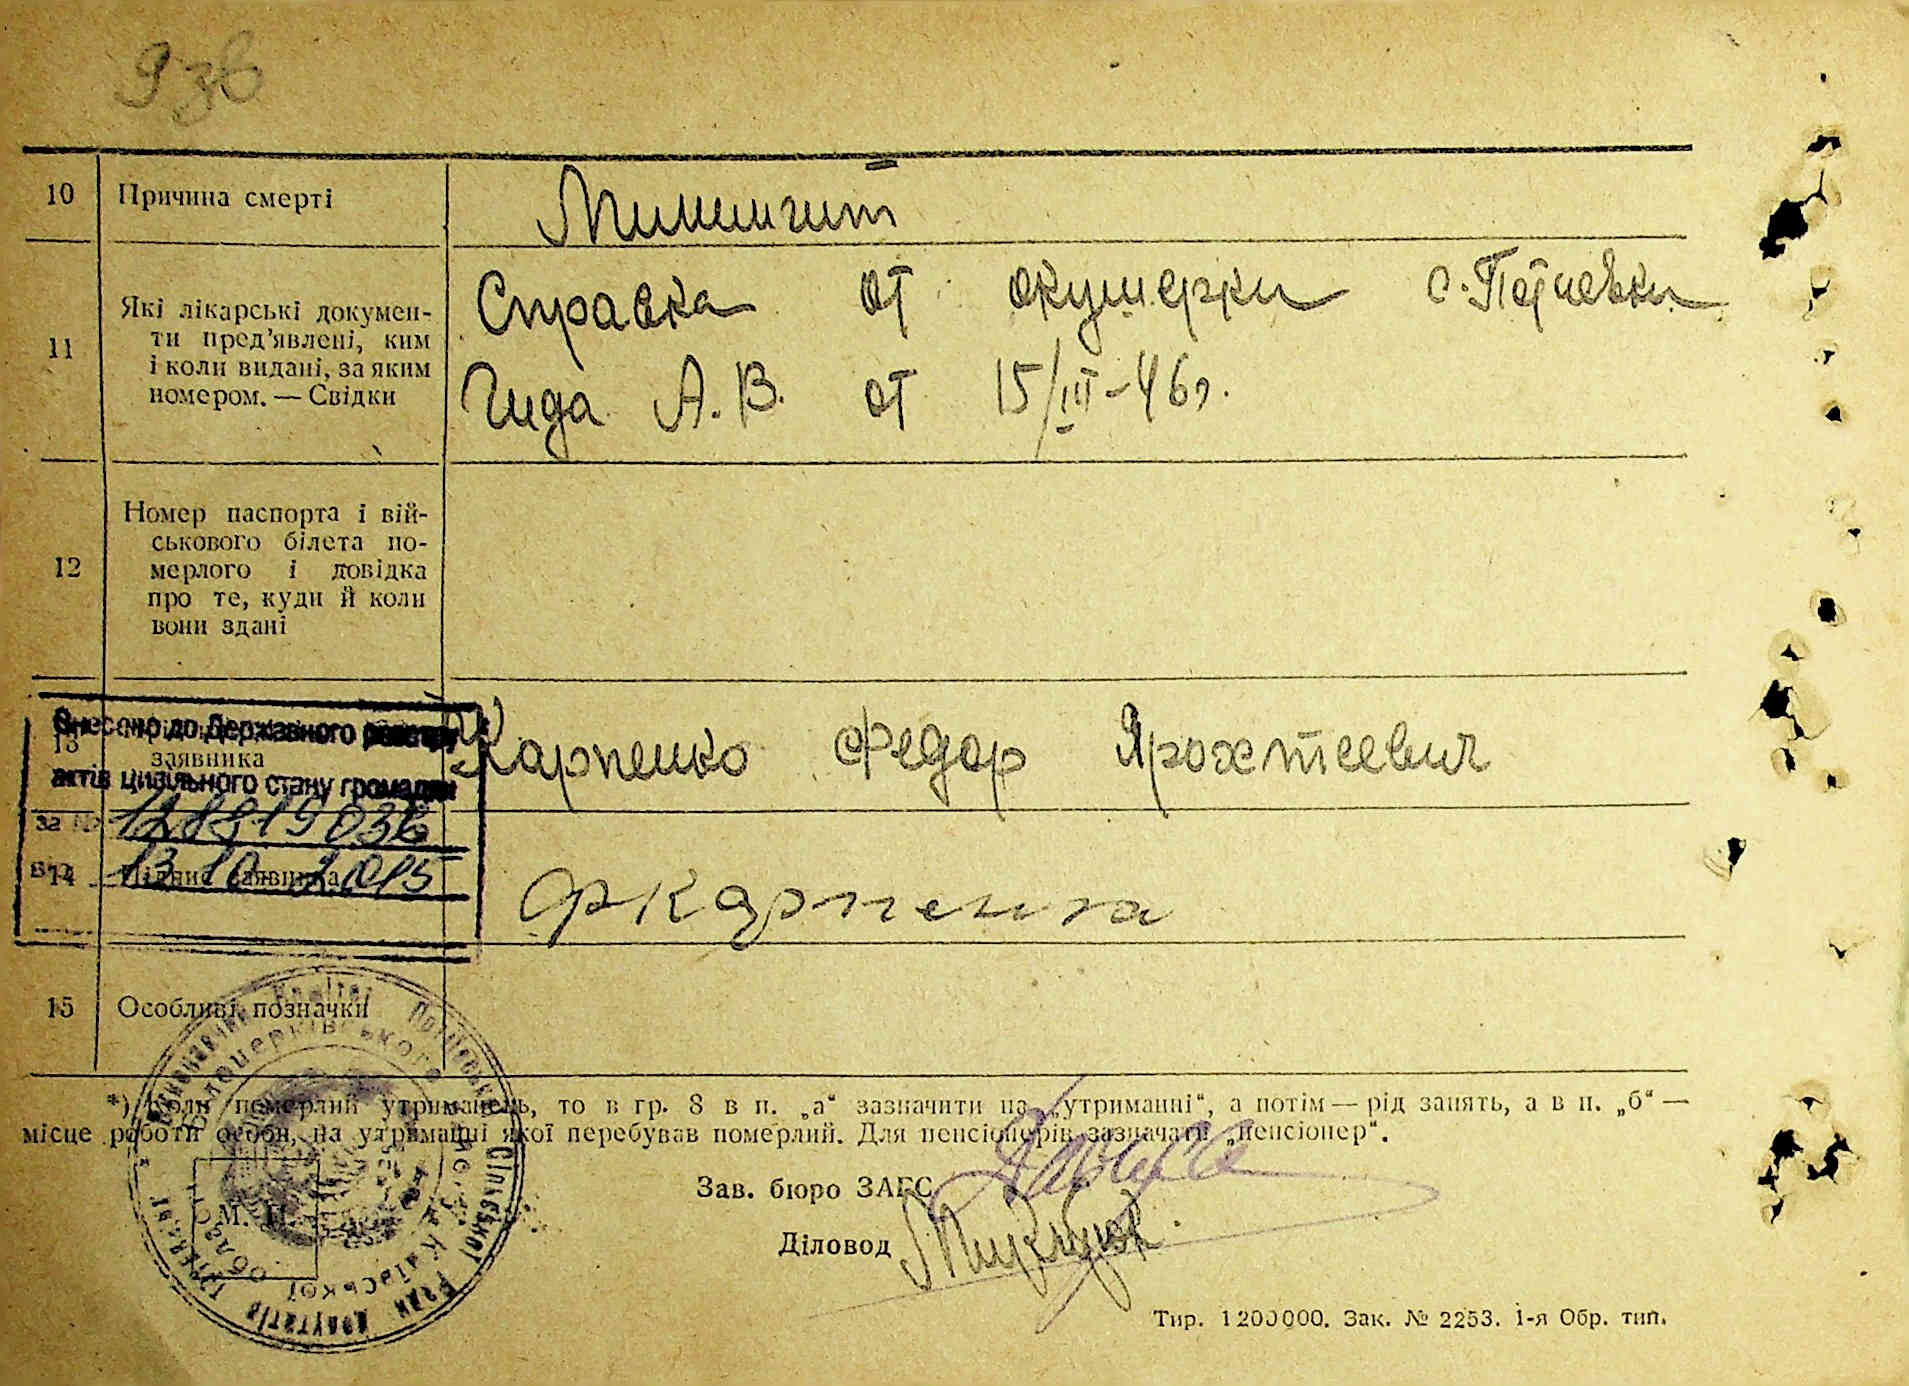 9зв
10 Причина смерті
Минингит
11 Які лікарські докумен-
ти пред’явлені, ким
і коли видані, за яким
номером. — Свідки
Справка от акушерки с.
Гида А. В. от 15/III-46г.
12 Номер паспорта і вій-
ськового білета по-
мерлого і довідка
про те, куди й коли
вони здані
13 заявника
Карпенко Федор
Внесено до Державного реєстру
актів цивільного стану громадян
за №
від 13 10 2015
14 Підпис заявника
ФКарпенка
15 Особливі позначки
*) Коли померлий утриманець, то в гр. 8 в п. „а“ зазначити на „утриманні“, а потім — рід занять, а в п. „б“ —
місце роботи особи, на утриманні якої перебував померлий. Для пенсіонерів зазначати „пенсіонер“.
Зав. бюро ЗАГС
Діловод
М. П.
Виконавчий Комітет Сільської Ради депутатів
Білоцерківського Київської області
Тир. 1200000. Зак. № 2253. 1-я Обр. тип.